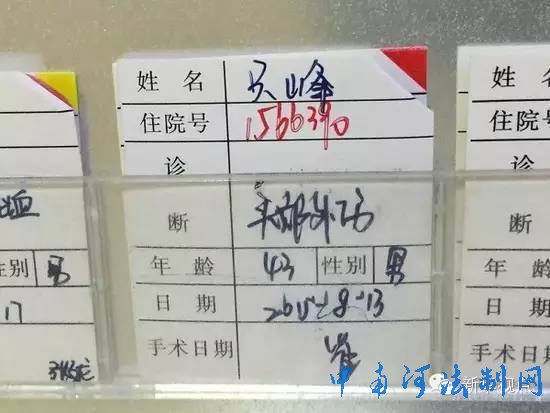 姓 名 只山峰
住院号 1566390
诊
断 头部外伤
年 龄 43 性别 男
日 期 2015-8-13
手术日期
性别 男
17
姓 名
住院号
诊
断
年 龄
日 期
手术日期
中南河法制网